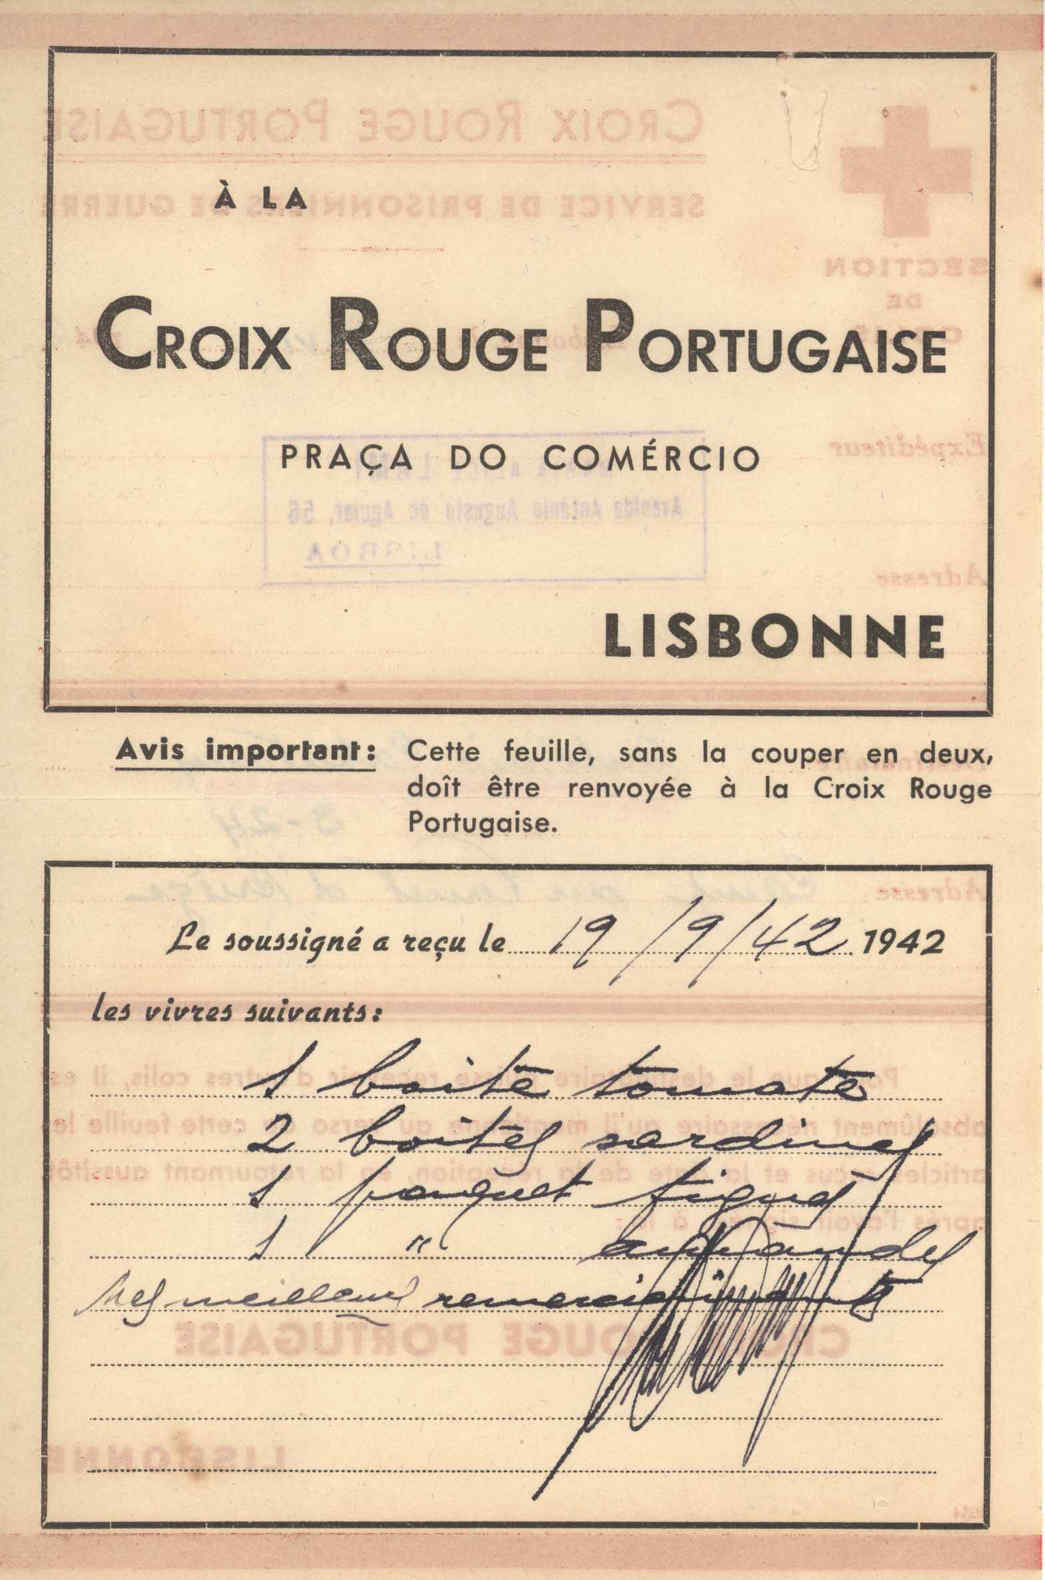 À LA
CROIX ROUGE PORTUGAISE
PRAÇA DO COMÉRCIO
LISBONNE
Avis important: Cette feuille, sans la couper en deux,
doît être renvoyée à la Croix Rouge
Portugaise.
Le soussigné a reçu le 19/9/42 1942
les vivres suivants:
1 boite tomate
2 boites sardines
1 paquet figues
1 " amandes
Mes meilleurs remerciements